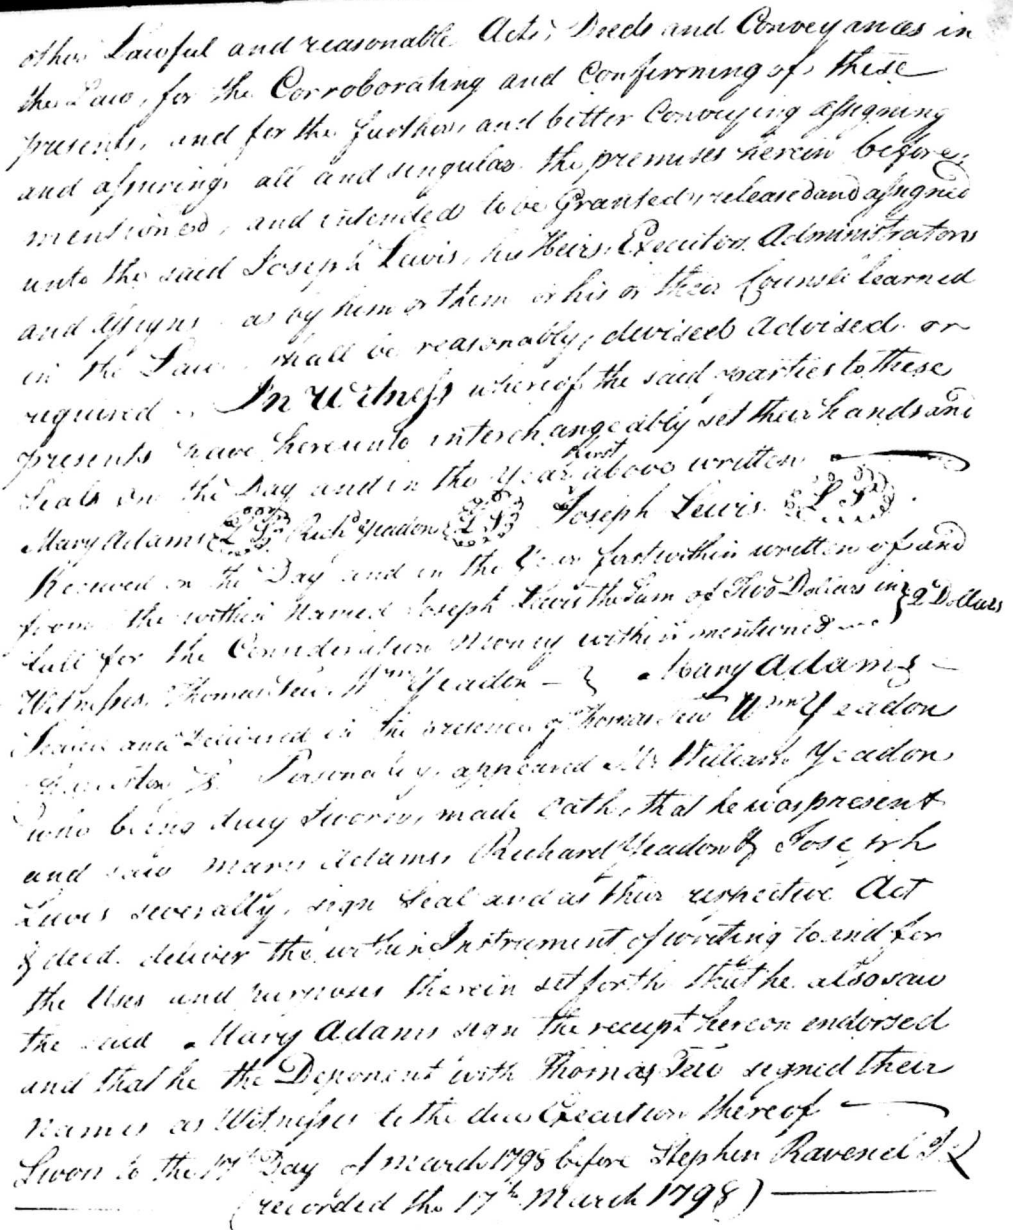 other Lawful and reasonable Acts, Deeds and Conveyances in
the Law, for the Corroborating and Confirming of these
presents, and for the further and better Conveying assigning
and assuring all and singular the premises herein before
mentioned, and intended to be Granted released and assigned
unto the said Joseph Lewis, his Heirs, Executors Administrators
and Assigns as by him or them or his or their Counsel learned
in the Law shall be reasonably devised advised or
required. In Witness whereof the said parties to these
presents have hereunto interchangeably set their hands and
Seals on the Day and in the Year first above written
Mary Adams L S Rich'd Yeadon L S Joseph Lewis L S
Received on the Day and in the Year first within written of and
from the within Named Joseph Lewis the Sum of Two Dollars in } 2 Dollars
full for the Consideration Money within mentioned
Witnesses Thomas Tew Wm Yeadon } Mary Adams
Sealed and Delivered in the presence of Thomas Tew Wm Yeadon
Personally appeared Mr William Yeadon
who being duly Sworn, made Oath, that he was present
and saw Mary Adams, Richard Yeadon & Joseph
Lewis severally, sign Seal and as their respective Act
& deed deliver the within Instrument of writing to and for
the Uses and purposes therein set forth that he also saw
the said Mary Adams sign the receipt hereon endorsed
and that he the Deponent with Thomas Tew signed their
Names as Witnesses to the due Execution thereof
Sworn to the 17th Day of March 1798 before Stephen Ravenel
(recorded the 17th March 1798)